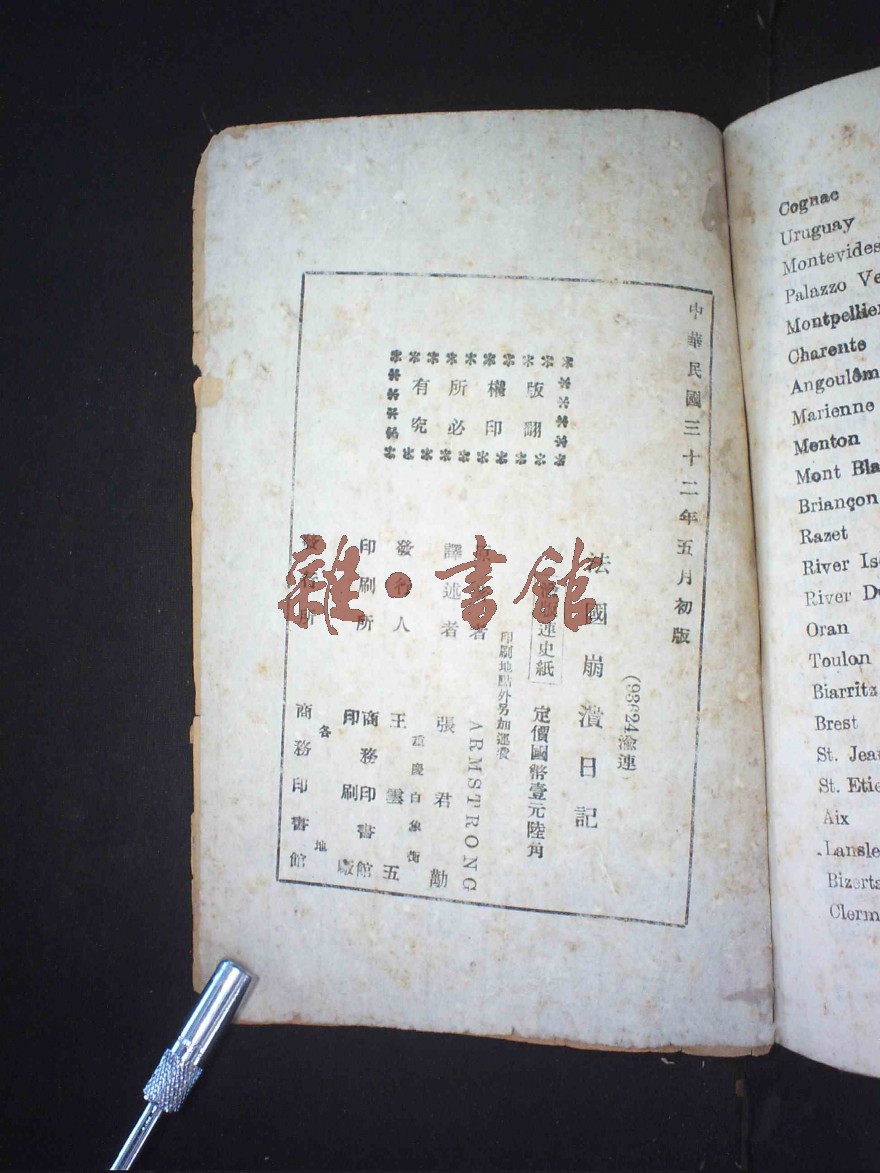 中華民國三十二年五月初版
版權所有
翻印必究
法國崩潰日記
渝連
連史紙
定價國幣壹元陸角
印刷地點外另加運費
者
ARMSTRONG
譯述者
張君勱
發行人
王雲五
重慶白象街
印刷所
商務印書館
印刷廠
所
各地
商務印書館
雜·書館
Cognac
Uruguay
Montevides
Palazzo Ve
Montpellier
Charente
Angoulêm
Marienne
Menton
Mont Bla
Briançon
Razet
River Is
River Du
Oran
Toulon
Biarritz
Brest
St. Jea
St. Etie
Aix
Lansle
Bizerta
Clerm